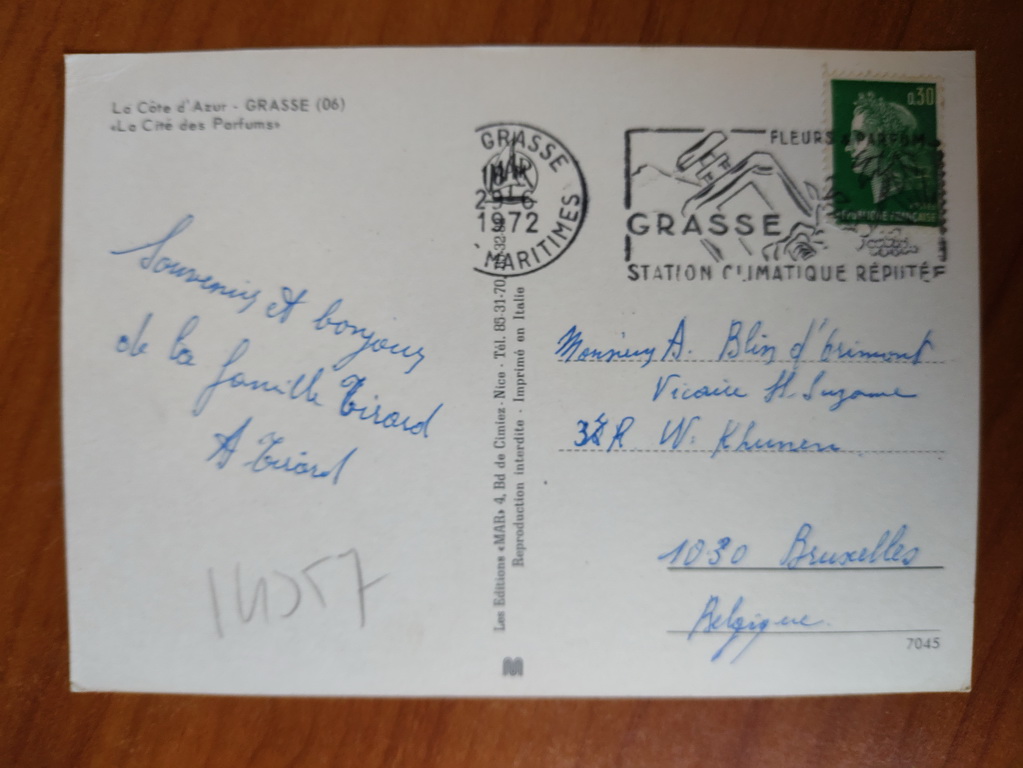 La Côte d'Azur - GRASSE (06)
«La Cité des Parfums»
GRASSE
1972
MARITIMES
FLEURS & PARFUMS
GRASSE
STATION CLIMATIQUE RÉPUTÉE
0,30
REPUBLIQUE FRANÇAISE
Souvenirs et bonjour
de la famille Tirard
A Tirard
Les Editions «MAR» 4, Bd de Cimiez - Nice - Tél. 85-31-70
Reproduction interdite - Imprimé en Italie
Monsieur A. Blin d'Orimont
Vicaire St. Suzanne
R W.
1030 Bruxelles
Belgique
7045
M